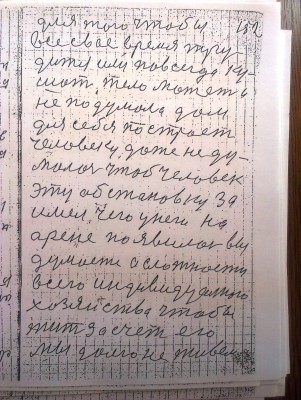 для того чтобы 152
все свое время труд
дится или навсегда ку
шат, тело может и
не подумала дом
для себя построет
человеку даже не ду
малах чтоб человек
эту обстановку за
имел, чего у него на
арене появилах вы
думаете о сложности
всего индивидуального
хозяйства чтобы
жит за счет его
мы долго не живем